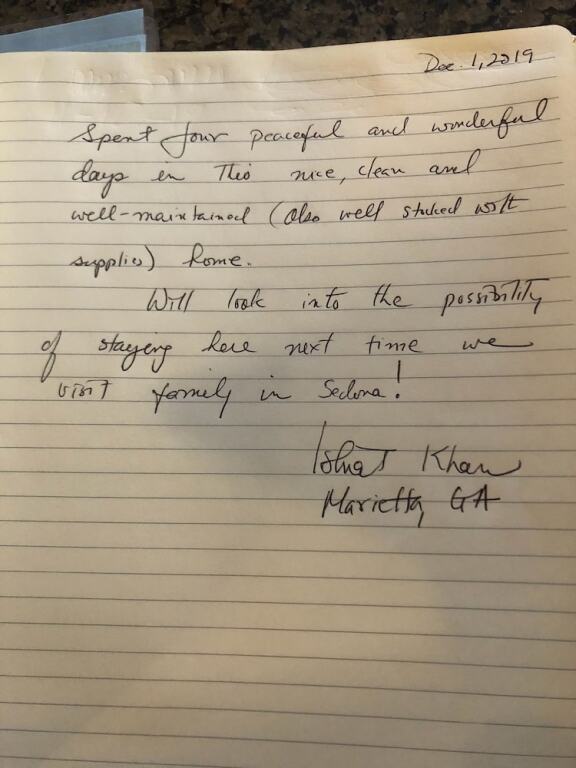 Dec. 1, 2019
Spent four peaceful and wonderful
days in this nice, clean and
well-maintained (also well stocked with
supplies) home.
Will look into the possibility
of staying here next time we
visit family in Sedona!
Khan
Marietta, GA